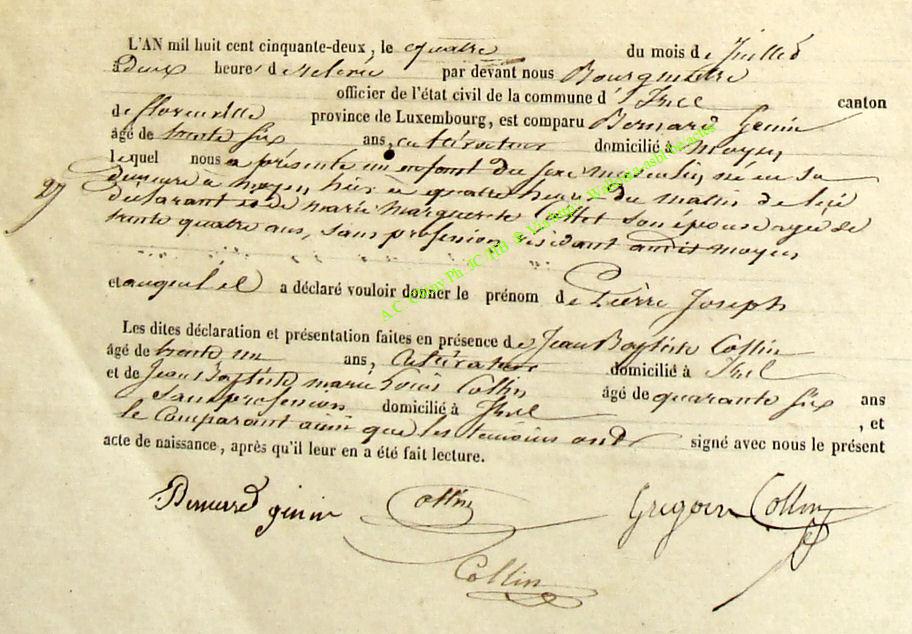 L'AN mil huit cent cinquante-deux, le quatre du mois de Juillet
à deux heure' de relevée par devant nous Bourgmestre
officier de l'état civil de la commune d' Izel canton
de florenville province de Luxembourg, est comparu Bernard Genin
âgé de trente six ans, cultivateur domicilié à moyen
lequel nous a présenté un enfant du sexe masculin, né en sa
demeure à moyen, hier à quatre heures du matin de lui
déclarant et de marie marguerite son épouse agée de
trente quatre ans, sans profession, residant audit moyen
27
et auquel il a déclaré vouloir donner le prénom de Pierre Joseph
Les dites déclaration et présentation faites en présence de Jean Baptiste Collin
âgé de trente un ans, cultivateur domicilié à Izel
et de Jean Baptiste marie Louis Collin âgé de quarante six ans
sans profession domicilié à Izel , et
le Comparant ainsi que les temoins ont signé avec nous le présent
acte de naissance, après qu'il leur en a été fait lecture.
Bernard genin Collin Grégoire Collin
Collin